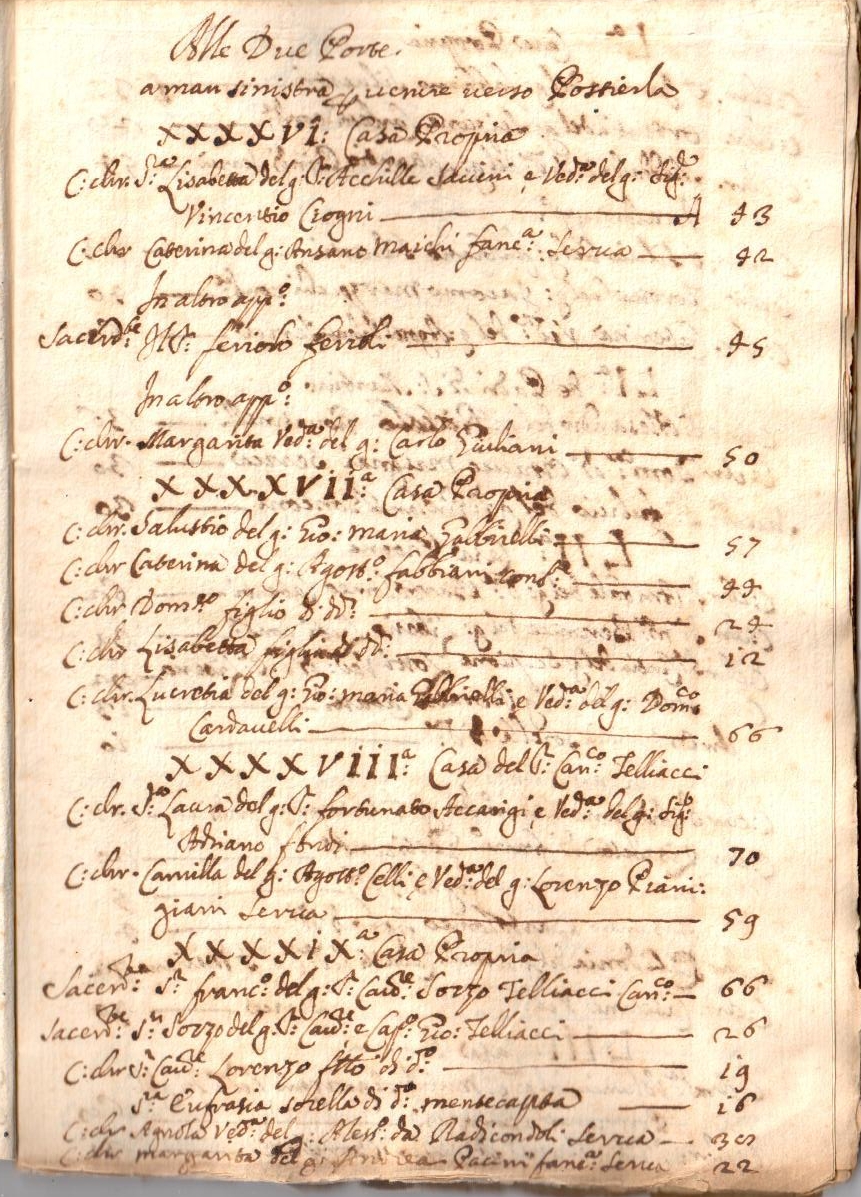 Alle Due Porte.
a man sinistra p venire verso Postierla
XXXXVI: Casa Propria
C: chr. S.ra Lisabetta del g: S: Achille Savini e Ved.a del g: Sig.r
Vincentio Crogni 43
C: chr Caterina del g: Ansano Maichi fanc.a Serva 42
In altro app.o:
Sacerd.te Feriolo Ferioli 45
In altro app.o:
C: chr. Margarita Ved.a del g: Carlo Giuliani 50
XXXXVII.a Casa Propria
C: chr. Salustio del g: Gio: Maria Gabbrielli 57
C: chr Caterina del g: Agost.o fabbiani cons.e 44
C: chr Dom.co figlio di dd: 24
C: chr Lisabetta figlia di dd: 12
C: chr. Lucretia del g: Gio: maria Gabbrielli e Ved.a del g: Dom.co
Cardavelli 66
XXXXVIII.a Casa del S: Can.co Telliacci
C: chr. S.ra Laura del g: S: fortunato Accarigi e Ved.a del g: Sig.r
Adriano 70
C: chr. Camilla del g: Agost.o Celli e Ved.a del g: Lorenzo Piani:
giani Serva 59
XXXXIX.a Casa Propria
Sacerd.te S.r franc.o del g: S: Cav.re Sozzo Telliacci Can.co 66
Sacerd.te S.r Sozzo del g: S: Cav.re e Cap.o Gio: Telliacci 26
C: chr S.r Cav.re Lorenzo fr̃llo di d.o 19
S.ra Eufrasia sorella di d.o mentecapta 16
C: chr Agnola Ved.a del g: Aless.o da Radicondoli Serva 30
C: chr margarita del g: Andrea Pacini fanc.a Serva 22